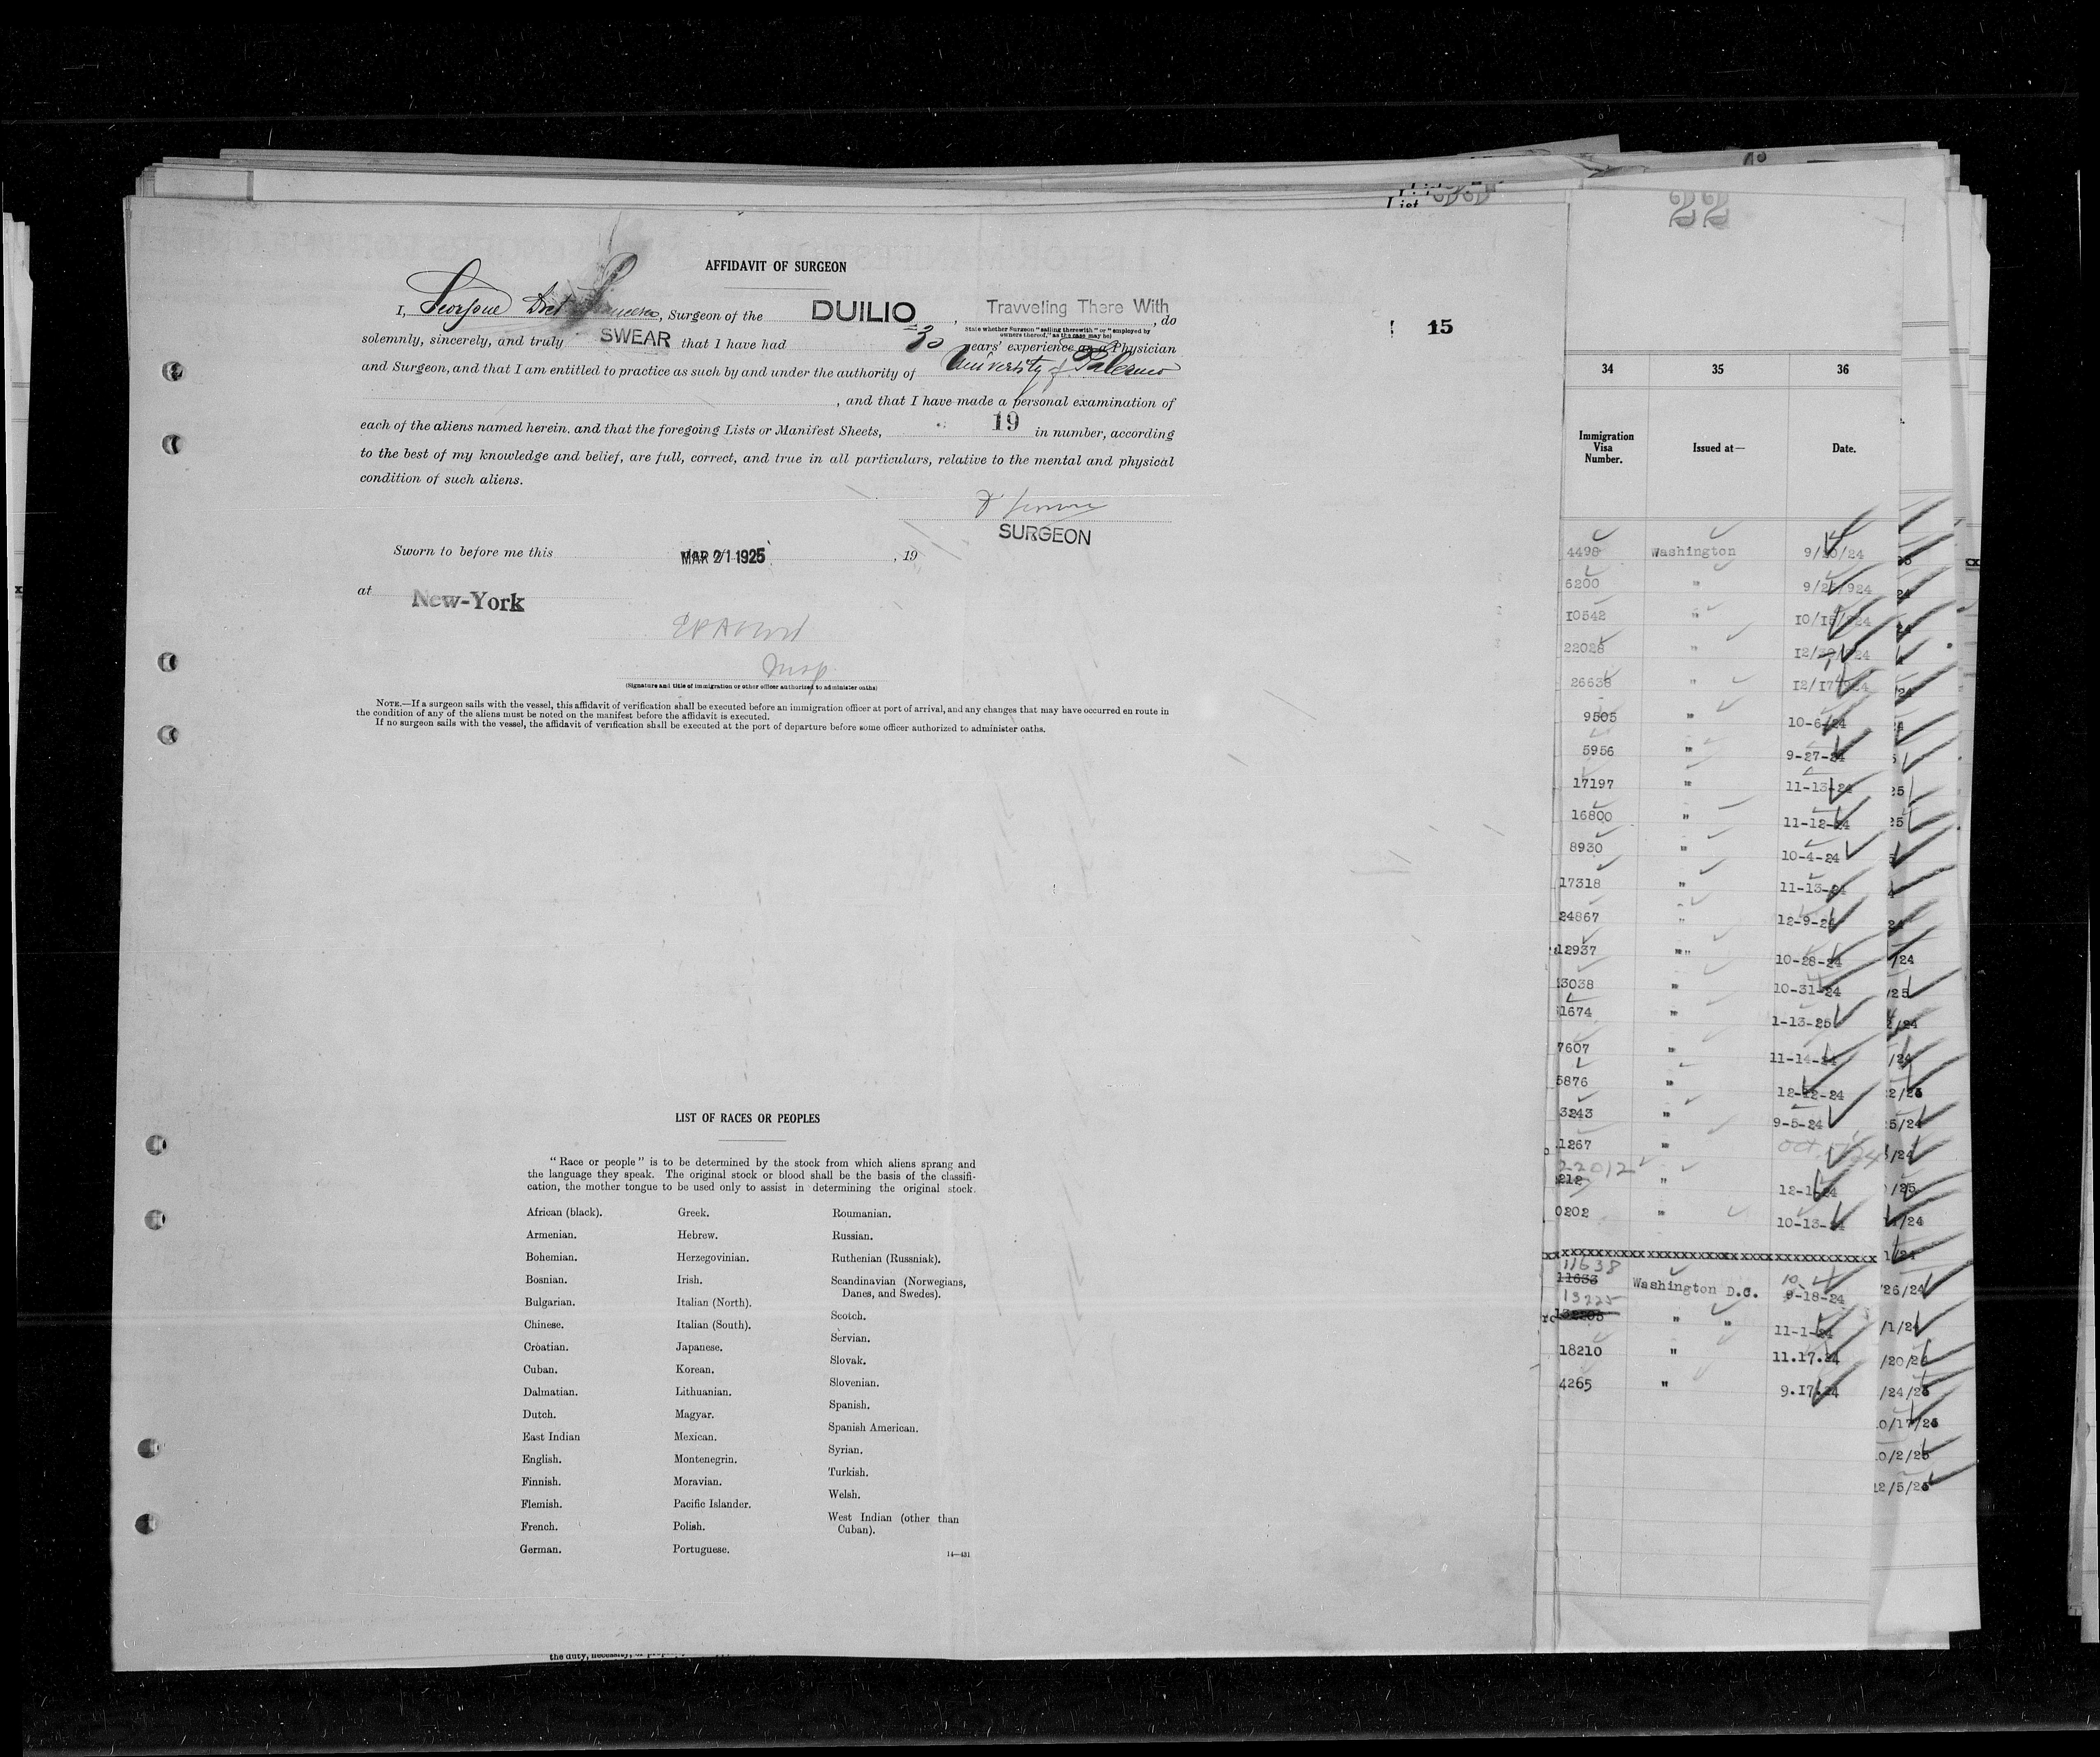 AFFIDAVIT OF SURGEON
I, Doct Francesco, Surgeon of the DUILIO, Travveling There With, do
State whether Surgeon "sailing therewith" or "employed by
owners thereof," as the case may be.
solemnly, sincerely, and truly SWEAR that I have had 30 years' experience as a Physician
and Surgeon, and that I am entitled to practice as such by and under the authority of University of Palermo
, and that I have made a personal examination of
each of the aliens named herein, and that the foregoing Lists or Manifest Sheets, 19 in number, according
to the best of my knowledge and belief, are full, correct, and true in all particulars, relative to the mental and physical
condition of such aliens.
SURGEON
Sworn to before me this MAR 21 1925, 19
at New-York
Insp.
(Signature and title of immigration or other officer authorized to administer oaths)
NOTE.—If a surgeon sails with the vessel, this affidavit of verification shall be executed before an immigration officer at port of arrival, and any changes that may have occurred en route in
the condition of any of the aliens must be noted on the manifest before the affidavit is executed.
If no surgeon sails with the vessel, the affidavit of verification shall be executed at the port of departure before some officer authorized to administer oaths.
LIST OF RACES OR PEOPLES
"Race or people" is to be determined by the stock from which aliens sprang and
the language they speak. The original stock or blood shall be the basis of the classifi-
cation, the mother tongue to be used only to assist in determining the original stock.
African (black).
Armenian.
Bohemian.
Bosnian.
Bulgarian.
Chinese.
Croatian.
Cuban.
Dalmatian.
Dutch.
East Indian
English.
Finnish.
Flemish.
French.
German.
Greek.
Hebrew.
Herzegovinian.
Irish.
Italian (North).
Italian (South).
Japanese.
Korean.
Lithuanian.
Magyar.
Mexican.
Montenegrin.
Moravian.
Pacific Islander.
Polish.
Portuguese.
Roumanian.
Russian.
Ruthenian (Russniak).
Scandinavian (Norwegians,
Danes, and Swedes).
Scotch.
Servian.
Slovak.
Slovenian.
Spanish.
Spanish American.
Syrian.
Turkish.
Welsh.
West Indian (other than
Cuban).
14—431
List
15
22
34 35 36
Immigration
Visa
Number.
Issued at—
Date.
4498 Washington 9/20/24
6200 "
10542 "
22028 "
26638 " 12/17/924
9505 " 10-6-24
5956 " 9-27-24
17197 " 11-13-24
16800 " 11-12-24
8930 " 10-4-24
17318 " 11-13-24
24867 " 12-9-24
12937 "" 10-28-24
3038 " 10-31-24
1674 " 1-13-25
7607 " 11-14-24
5876 " 12-12-24
3243 " 9-5-24
1267 "
22012
212 " 12-1-24
0202 " 10-13-24
xxxxxxxxxxxxxxxxxxxxxxxxxxxxxxxxxxxx
11638
11633 Washington D.C. 9-18-24
13225
132205 " " 11-1-24
18210 " 11.17.24
4265 " 9.17.24
/24
/25
/24
/24
5/24
/25
/24
26/24
/1/24
the duty, necessity,